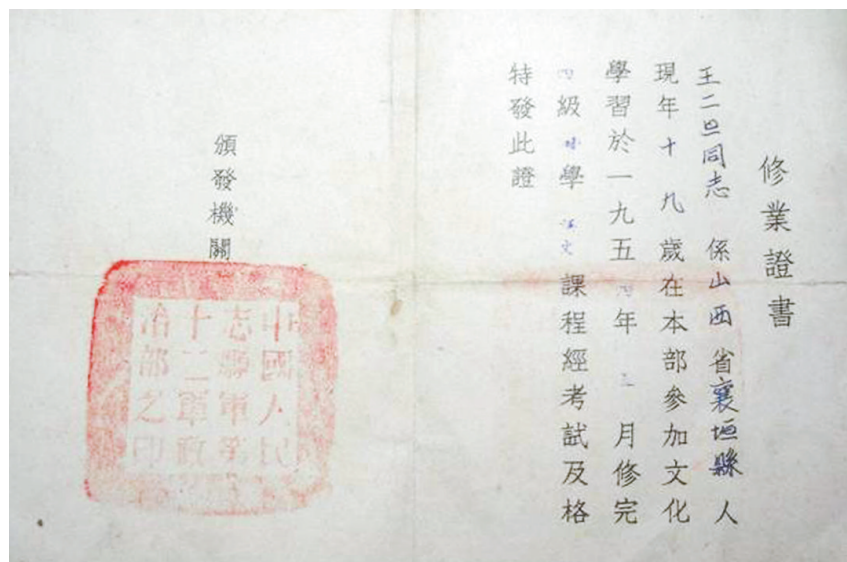 修業證書
王二旦同志 係山西省襄垣縣人
現年十九歲在本部參加文化
學習於一九五四年二月修完
四級學文課程經考試及格
特發此證
頒發機關
中國人民
志願軍第
十二軍政
治部之印